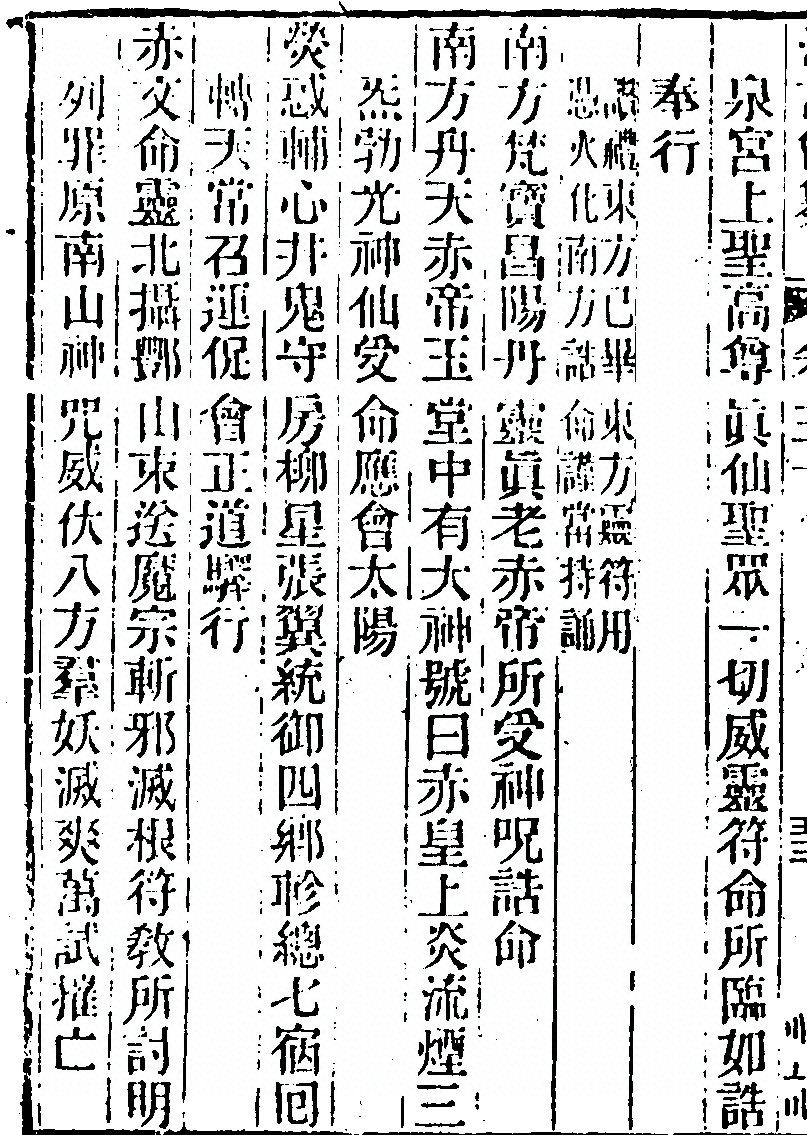 泉宮上聖高尊眞仙聖眾一切威靈符命所臨如誥
奉行
讚禮東方已畢東方靈符用
慿火化南方誥命謹當持誦
南方梵寶昌陽丹靈眞老赤帝所受神呪誥命
南方丹天赤帝玉堂中有大神號曰赤皇上炎流煙三
炁勃光神仙受命應會太陽
熒惑輔心井鬼守房柳星張翼統御四鄉軫總七宿回
轉天常召運促會正道驛行
赤文命靈北攝酆山束送魔宗斬邪滅根符教所討明
列罪原南山神咒威伏八方羣妖滅爽萬試摧亡